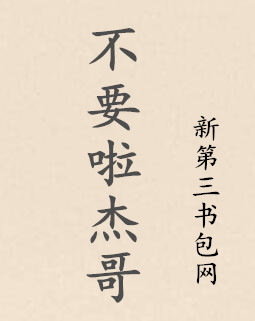 不要啦杰哥
新第三书包网